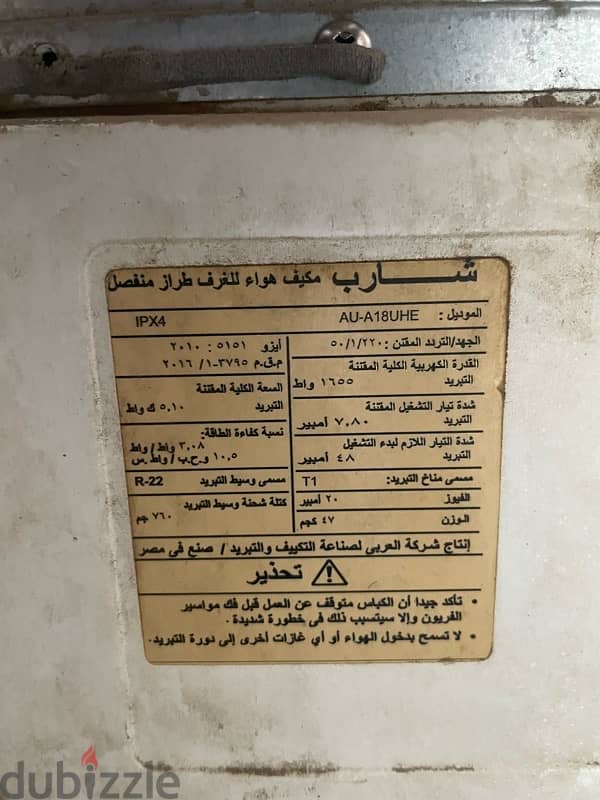 شـــارب مكيف هواء للغرف طراز منفصل
الموديل : AU-A18UHE IPX4
الجهد/التردد المقنن : ٥٠/١/٢٢٠
القدرة الكهربية الكلية المقننة
التبريد ١٦٥٥ واط
شدة تيار التشغيل المقننة
التبريد ٧,٨٠ أمبير
شدة التيار اللازم لبدء التشغيل
التبريد ٤٨ أمبير
مسمى مناخ التبريد: T1
الفيوز ٢٠ أمبير
الوزن ٤٧ كجم
أيزو ٥١٥١ : ٢٠١٠
م.ق.م ٣٧٩٥-١/ ٢٠١٦
السعة الكلية المقننة
التبريد ٥,١٠ ك واط
نسبة كفاءة الطاقة:
٣,٠٨ واط / واط
١٠,٥ و.ح.ب/ واط.س
مسمى وسيط التبريد R-22
كتلة شحنة وسيط التبريد
٧٦٠ جم
إنتاج شركة العربى لصناعة التكييف والتبريد / صنع فى مصر
تحذير
• تأكد جيدا أن الكباس متوقف عن العمل قبل فك مواسير
الفريون وإلا سيتسبب ذلك فى خطورة شديدة.
• لا تسمح بدخول الهواء أو أي غازات أخرى إلى دورة التبريد.
dubizzle